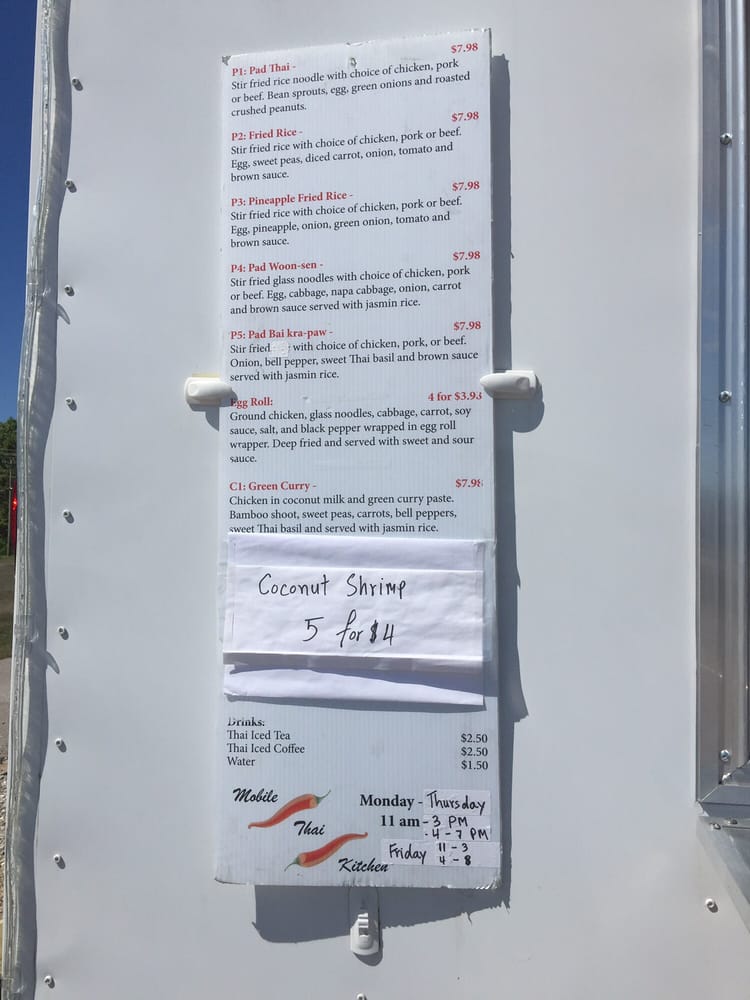 P1: Pad Thai - $7.98
Stir fried rice noodle with choice of chicken, pork
or beef. Bean sprouts, egg, green onions and roasted
crushed peanuts.
P2: Fried Rice - $7.98
Stir fried rice with choice of chicken, pork or beef.
Egg, sweet peas, diced carrot, onion, tomato and
brown sauce.
P3: Pineapple Fried Rice - $7.98
Stir fried rice with choice of chicken, pork or beef.
Egg, pineapple, onion, green onion, tomato and
brown sauce.
P4: Pad Woon-sen - $7.98
Stir fried glass noodles with choice of chicken, pork
or beef. Egg, cabbage, napa cabbage, onion, carrot
and brown sauce served with jasmin rice.
P5: Pad Bai kra-paw - $7.98
Stir fried with choice of chicken, pork, or beef.
Onion, bell pepper, sweet Thai basil and brown sauce
served with jasmin rice.
Egg Roll: 4 for $3.93
Ground chicken, glass noodles, cabbage, carrot, soy
sauce, salt, and black pepper wrapped in egg roll
wrapper. Deep fried and served with sweet and sour
sauce.
C1: Green Curry - $7.98
Chicken in coconut milk and green curry paste.
Bamboo shoot, sweet peas, carrots, bell peppers,
sweet Thai basil and served with jasmin rice.
Coconut Shrimp
5 for $4
Drinks:
Thai Iced Tea $2.50
Thai Iced Coffee $2.50
Water $1.50
Mobile
Thai
Kitchen
Monday - Thursday
11 am - 3 PM
- 4 - 7 PM
Friday 11 - 3
4 - 8